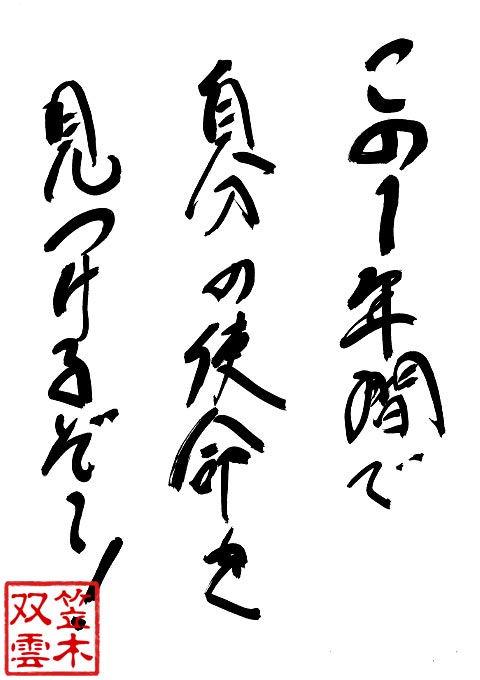 この1年間で
自分の使命を
見つけるぞ〜!
笠木
双雲